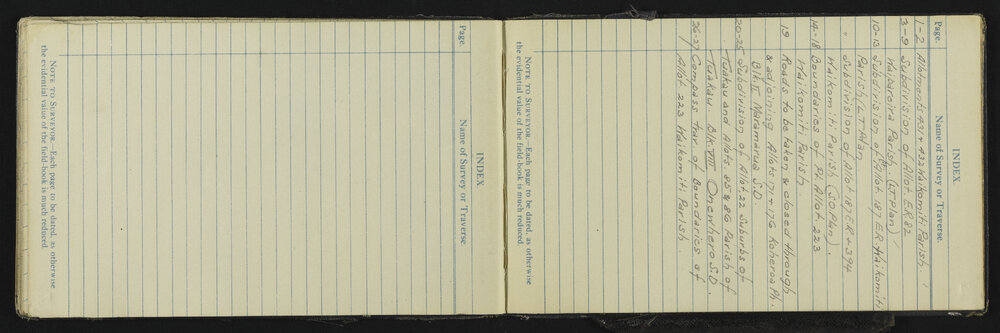 INDEX.
Page. Name of Survey or Traverse.
1-2 Allotments 431 & 432 Waikomiti Parish.
3-9 Subdivision of Allot E.R. 82
Waipareira Parish. (L.T. Plan)
10-13 Subdivision of Pt Allot 187 E.R. Waikomiti
Parish (L.T. Plan
" Subdivision of Allot 187 E.R. & 394
Waikomiti Parish (SO Plan).
14-18 Boundaries of Pt Allot 223
Waikomiti Parish.
19 Roads to be taken & closed through
& adjoining Allots 171 & 176 Koheroa Ph.
Blk II Maramarua S.D.
20-25 Subdivision of Allot 22 Suburbs of
Tuakau and Allots 85 & 86 Parish of
Tuakau Blk VIII Onewhero S.D.
26-27 Compass trav of Boundaries of
Allot 223 Waikomiti Parish.
NOTE TO SURVEYOR.—Each page to be dated, as otherwise
the evidential value of the field-book is much reduced.
INDEX
Page. Name of Survey or Traverse
NOTE TO SURVEYOR.—Each page to be dated, as otherwise
the evidential value of the field-book is much reduced.